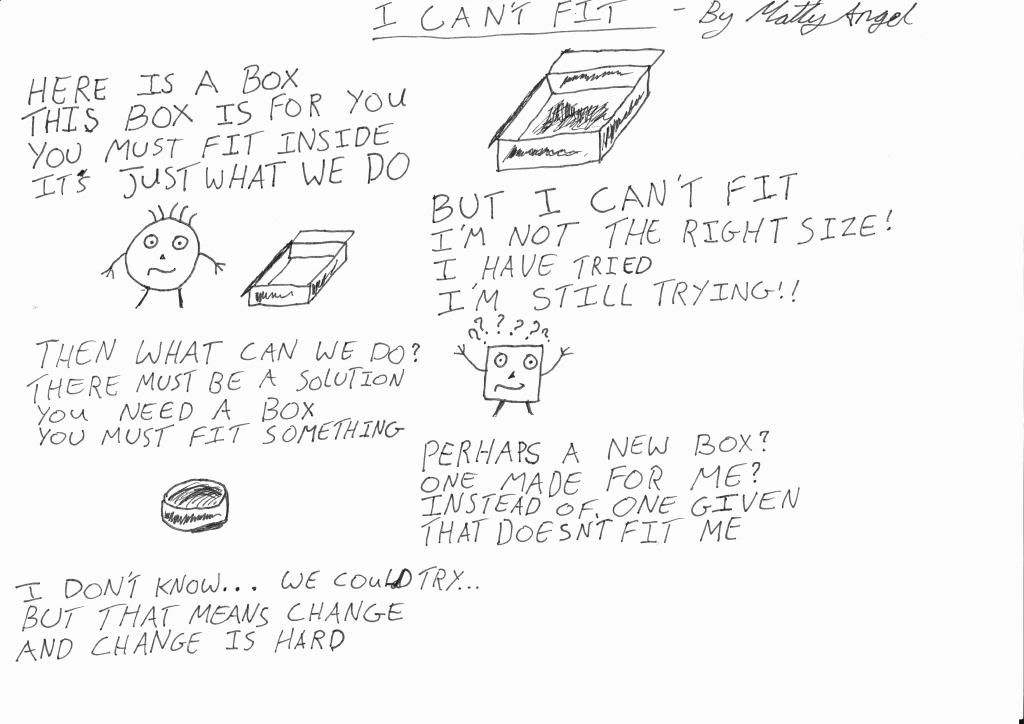 I CAN'T FIT - By Matty Angel
HERE IS A BOX
THIS BOX IS FOR YOU
YOU MUST FIT INSIDE
IT'S JUST WHAT WE DO
BUT I CAN'T FIT
I'M NOT THE RIGHT SIZE!
I HAVE TRIED
I'M STILL TRYING!!
?????
THEN WHAT CAN WE DO?
THERE MUST BE A SOLUTION
YOU NEED A BOX
YOU MUST FIT SOMETHING
PERHAPS A NEW BOX?
ONE MADE FOR ME?
INSTEAD OF ONE GIVEN
THAT DOESNT FIT ME
I DON'T KNOW... WE COULD TRY...
BUT THAT MEANS CHANGE
AND CHANGE IS HARD